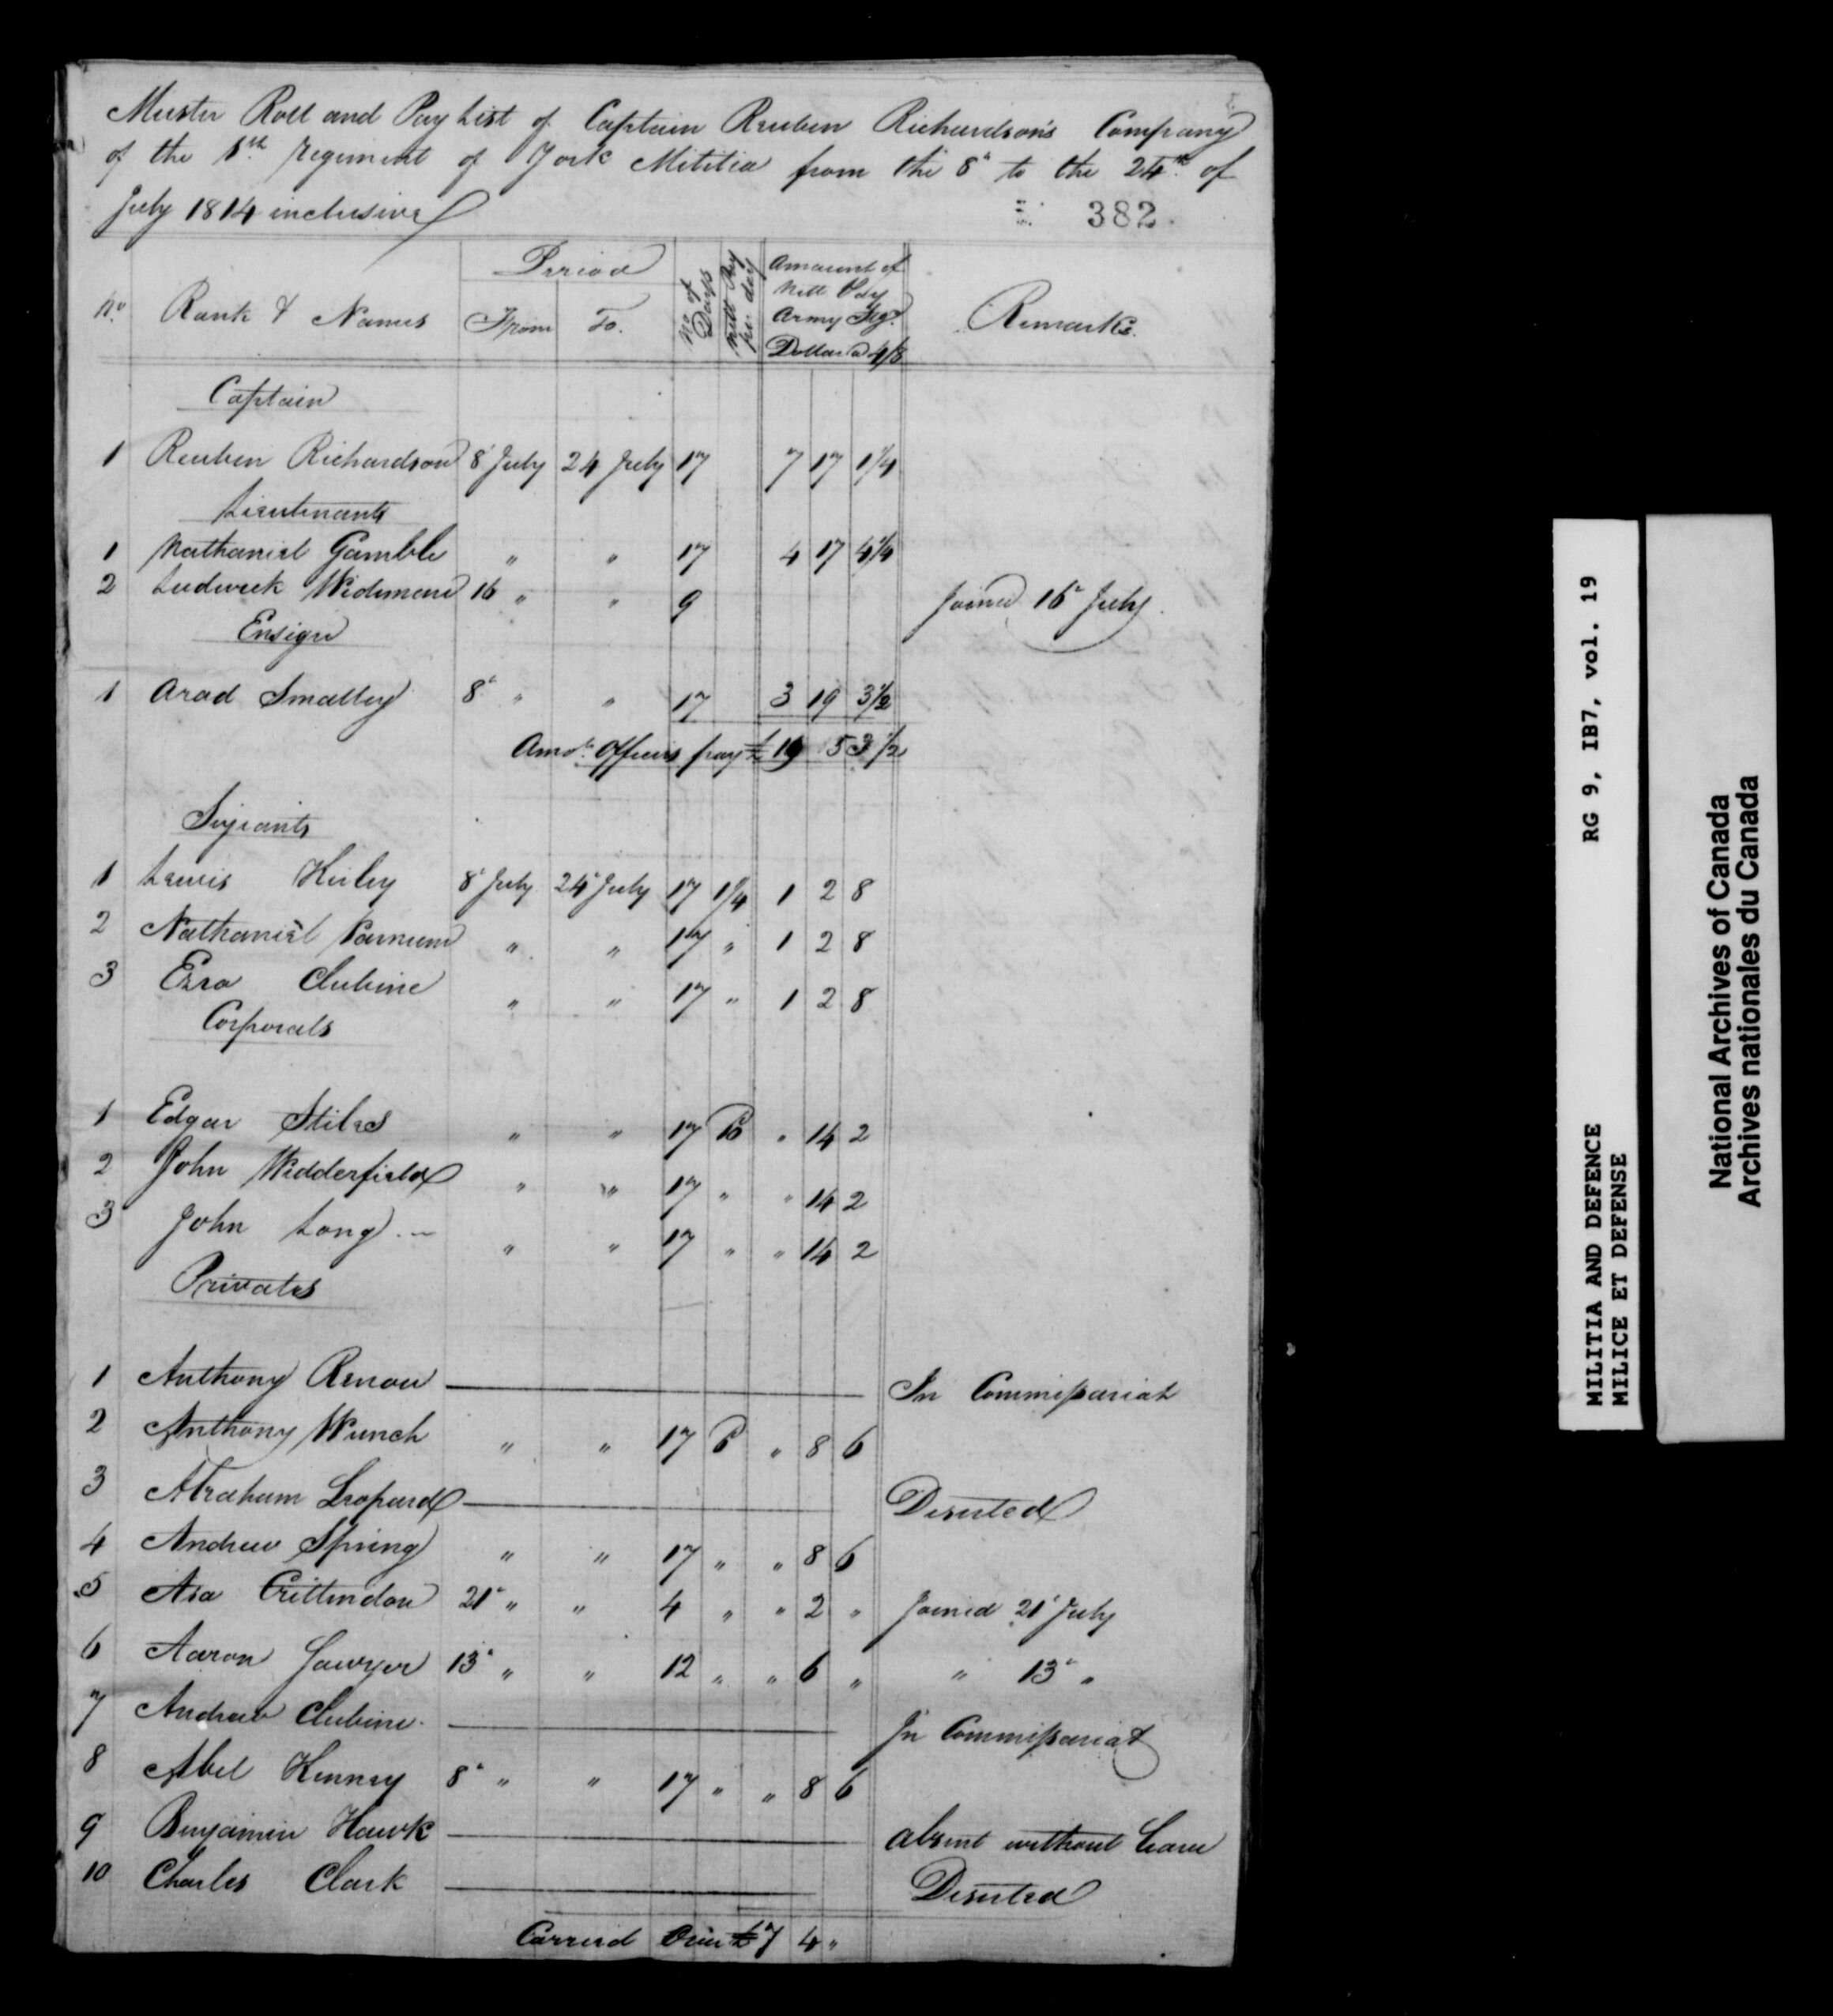 Muster Roll and Pay List of Captain Reuben Richardson's Company
of the 1st Regiment of York Militia from the 8th to the 24th of
July 1814 inclusive
382.
No. Rank & Names Period From To. No of Days Nett Pay per day Amount of Nett Pay Army Stg. Dollar @ 4/8 Remarks.
Captain
1 Reuben Richardson 8th July 24 July 17 7 17 1 1/4
Lieutenants
1 Nathaniel Gamble " " 17 4 17 4 1/4
2 Ludwick Widemane 16 " " 9 Joined 16th July.
Ensign
1 Arad Smalley 8th " " 17 3 19 3 1/2
Amot. Officers pay £ 19 5 3 1/2
Serjeants
1 Lewis 8th July 24th July 17 1/4 1 2 8
2 Nathaniel " " 17 " 1 2 8
3 Ezra Clubine " " 17 " 1 2 8
Corporals
1 Edgar Stiles " " 17 10 " 14 2
2 John Widderfield " " 17 " " 14 2
3 John Long " " 17 " " 14 2
Privates
1 Anthony In Commissariat
2 Anthony Wunch " " 17 6 " 8 6
3 Abraham Lepard Deserted
4 Andrew Spring " " 17 " " 8 6
5 Asa Crittendon 21st " " 4 " " 2 " Joined 21st July
6 Aaron Sawyer 13th " " 12 " " 6 " " 13th "
7 Andrew Clubine. In Commissariat
8 Abel Kenney 8th " " 17 " " 8 6
9 Benjamin Hawk absent without leave
10 Charles Clark Deserted
Carried Over £ 7 4 "
MILITIA AND DEFENCE RG 9, IB7, vol. 19
MILICE ET DEFENSE
National Archives of Canada
Archives nationales du Canada